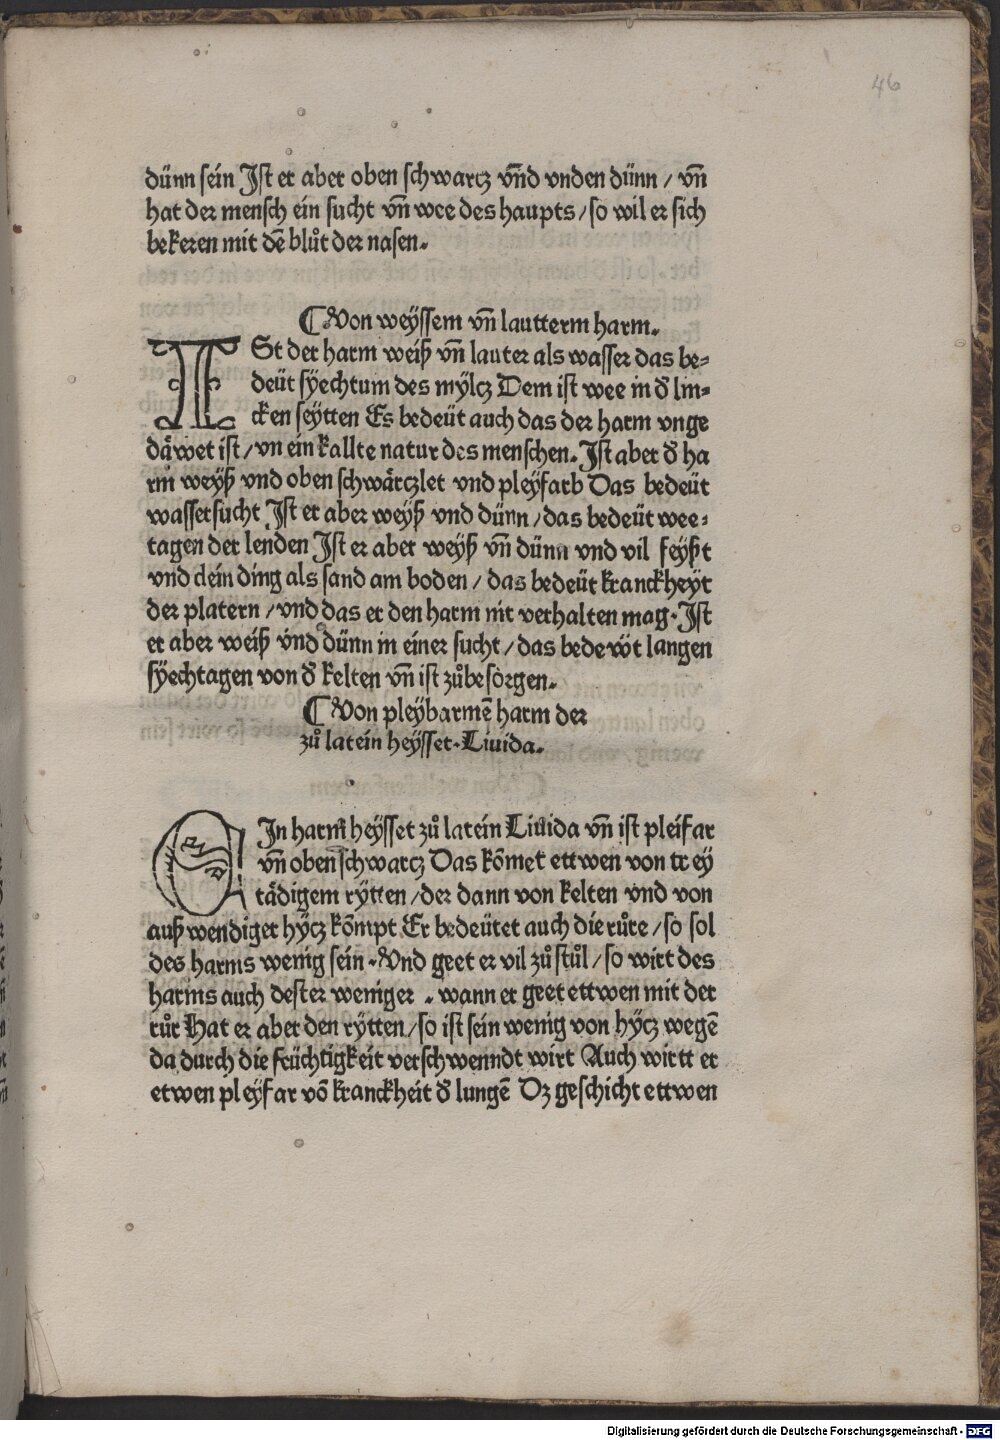 46
dünn sein Jst er aber oben schwarcz vn̄d vnden dünn / vn̄
hat der mensch ein sucht vn̄ wee des haupts / so wil er sich
bekeren mit dē blůt der nasen.
¶ Von weÿssem vn̄ lautterm harm.
ISt der harm weiß vn̄ lauter als wasser das be⸗
deüt sÿechtum des mÿlcz Dem ist wee in d̕ lin⸗
cken seÿtten Es bedeüt auch das der harm vnge
dåwet ist / vn ein kallte natur des menschen. Jst aber d̕ ha
rm weÿß vnd oben schwårczlet vnd pleÿfarb Das bedeüt
wassersucht Jst er aber weÿß vnd dünn / das bedeüt wee⸗
tagen der lenden Jst er aber weÿß vn̄ dünn vnd vil feÿßt
vnd clein ding als sand am boden / das bedeüt kranckheÿt
der platern / vnd das er den harm nit verhalten mag. Jst
er aber weiß vnd dünn in einer sucht / das bedewt langen
sÿechtagen von d̕ kelten vn̄ ist zůbesorgen.
¶ Von pleÿbarmē harm der
zů latein heÿsset. Liuida.
EIn harm heÿsset zů latein Liuida vn̄ ist pleifar
vn̄ oben schwarcz Das kōmet ettwen von trey
tådigem rÿtten / der dann von kelten vnd von
außwendiger hÿcz kōmpt Er bedeütet auch die růre / so sol
des harms wenig sein. Vnd geet er vil zů stůl / so wirt des
harms auch dester weniger . wann er geet ettwen mit der
růr Hat er aber den rÿtten / so ist sein wenig von hÿcz wegē
da durch die früchtigkeit verschwenndt wirt Auch wirtt er
etwen pleÿfar vō kranckheit d̕ lungē Dz geschicht ettwen
Digitalisierung gefördert durch die Deutsche Forschungsgemeinschaft - DFG